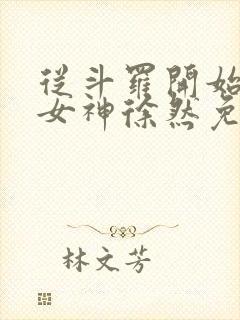 從斗羅開始
女神徐然免
林文芳